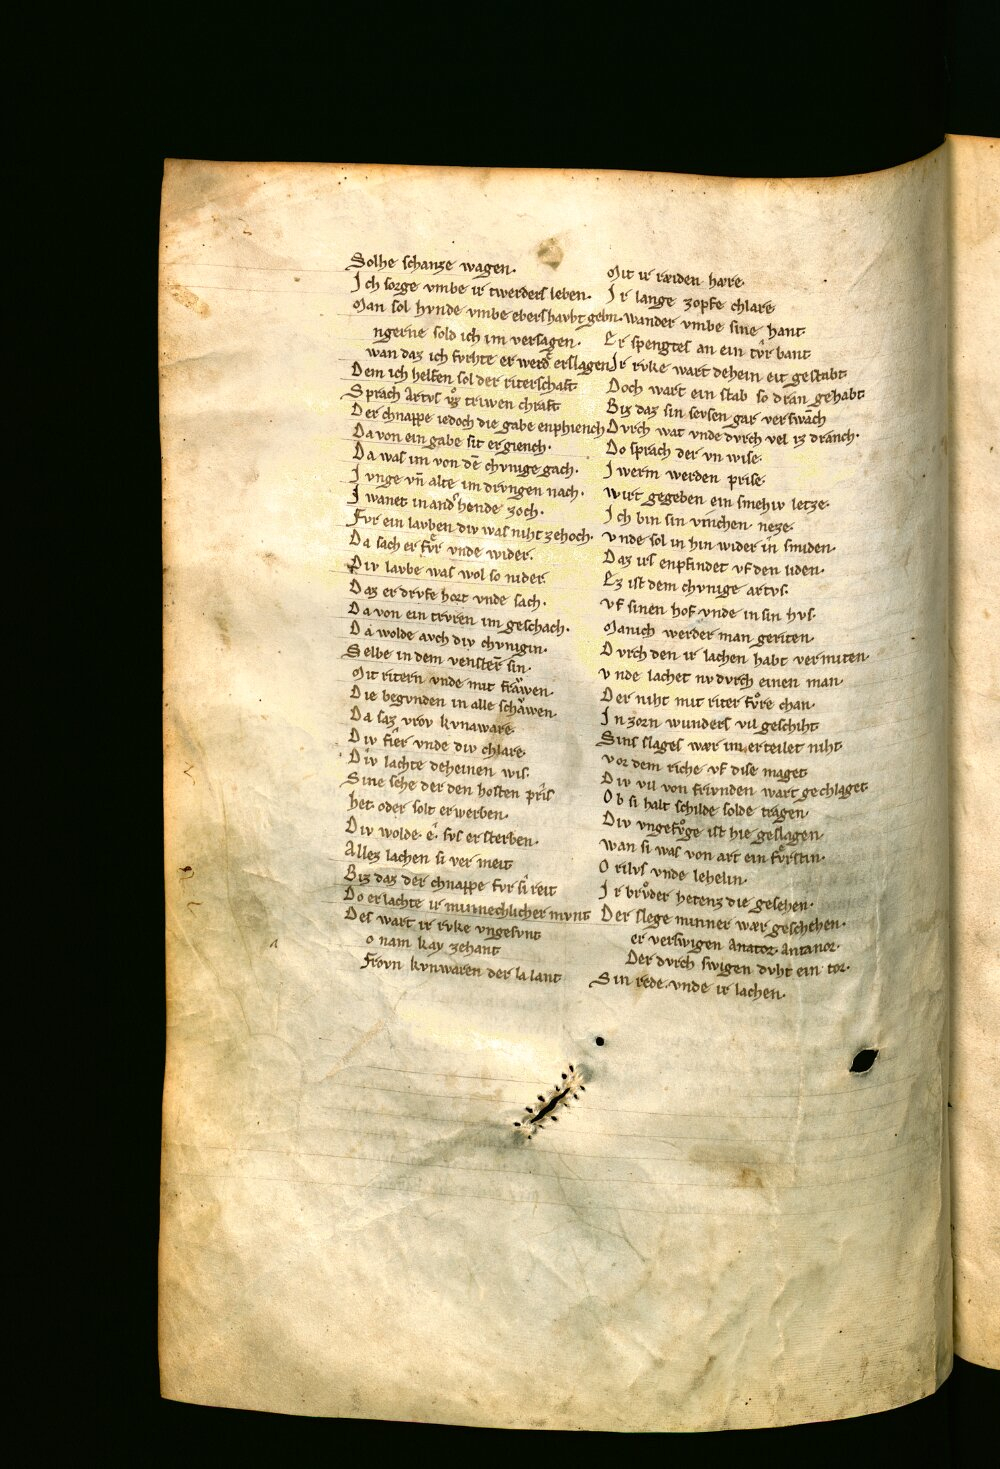 Solhe schanze wagen.
Ich sorge vmbe ir twerders leben.
Man sol hvnde vmbe ebershavbt gebn.
ngerne sold ich im versagen.
wan daz ich fvrhte er werde erslagen
Dem ich helfen sol der riterschaft
Sprach Artvs vz triwen chraft
Der chnappe iedoch die gabe enphiench
Da von ein gabe sit ergiench.
Da was im von dē chvnige gach.
Ivnge vn̄ alte im drvngen nach.
Iwanet in and hende zoch.
Fvr ein lavben div was niht zehoch.
Da sach er fv̊r vnde wider.
Div lavbe was wol so nider
Daz er drvfe hort vnde sach.
Da von ein trvren im geschach.
Da wolde avch div chvnigin.
Selbe in dem venster sin.
Mit ritern vnde mit frawen.
Die begvnden in alle schawen.
Da saz vrov kvnaware.
Div fier vnde div chlare.
Div lachte deheinen wis.
Sine sehe der den hosten pris
het oder solt erwerben.
Div wolde ê. svs ersterben.
Allez lachen si vermeit
Biz daz der chnappe fvr si reit
Do erlachte ir minnechlicher mvnt
Des wart ir rvke vngesvnt
o nam kay zehant
Frovn kvnwaren der la lant
Mit ir ræiden hære.
Ir lange zopfe chlare
wander vmbe sine hant
Er spengtes an ein tv̂r bant
Ir rvke wart dehein eit gestabt
Doch wart ein stab so dran gehabt
Biz daz sin sevsen gar verswāch
Dvrch wat vnde dvrch vel iz dranch.
Do sprach der vn wise.
Iwerm werden prise.
wirt gegeben ein smehiv letze.
Ich bin sin vinchen neze.
vnde sol in hin wider in smiden.
Daz irs enpfindet vf den liden.
Ez ist dem chvnige artvs.
vf sinen hof vnde in sin hvs.
Manich werder man geriten.
Dvrch den ir lachen habt vermiten.
vnde lachet nv dvrch einen man.
Der niht mit riter fv̊re chan.
In zorn wunders vil geschiht
Sins slages wær im erteilet niht
vor dem riche vf dise maget
Div vil von frivnden wart gechlaget
Ob si halt schilde solde tragen.
Div vngefv̊ge ist hie geslagen
wan si was von art ein fv̊rstin.
Orilvs vnde lehelin.
Ir brv̊der hetens die gesehen.
Der slege minner wær geschehen.
er verswigen Anator Antanor.
Der dvrch swigen dvht ein tor.
Sin rede vnde ir lachen.